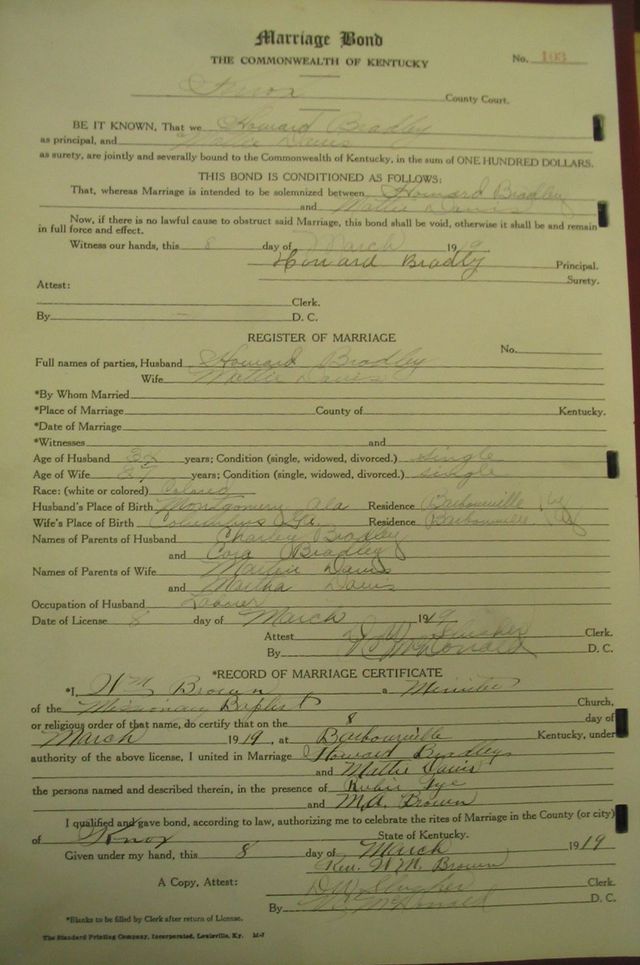 Marriage Bond
THE COMMONWEALTH OF KENTUCKY
No. 103
Knox County Court.
BE IT KNOWN, That we Howard Bradley
as principal, and Mattie Davis
as surety, are jointly and severally bound to the Commonwealth of Kentucky, in the sum of ONE HUNDRED DOLLARS.
THIS BOND IS CONDITIONED AS FOLLOWS:
That, whereas Marriage is intended to be solemnized between Howard Bradley
and Mattie Davis
Now, if there is no lawful cause to obstruct said Marriage, this bond shall be void, otherwise it shall be and remain
in full force and effect.
Witness our hands, this 8 day of March 1919
Howard Bradly Principal.
Surety.
Attest:
Clerk.
By D. C.
REGISTER OF MARRIAGE
No.
Full names of parties, Husband Howard Bradley
Wife Mattie Davis
*By Whom Married
*Place of Marriage County of Kentucky.
*Date of Marriage
*Witnesses and
Age of Husband 32 years; Condition (single, widowed, divorced.) single
Age of Wife 27 years; Condition (single, widowed, divorced.) single
Race: (white or colored) Colored
Husband's Place of Birth Montgomery Ala Residence Barbourville Ky
Wife's Place of Birth Columbus Ga. Residence Barbourville Ky
Names of Parents of Husband Charley Bradley
and Cora Bradley
Names of Parents of Wife Davis
and Martha Davis
Occupation of Husband Laborer
Date of License 8 day of March 1919
Attest Clerk.
By McDonald D. C.
*RECORD OF MARRIAGE CERTIFICATE
*I, Wm Brown a Minister
of the Missionary Baptist Church,
or religious order of that name, do certify that on the 8 day of
March 1919, at Barbourville Kentucky, under
authority of the above license, I united in Marriage Howard Bradley
and Mattie Davis
the persons named and described therein, in the presence of
and M.A. Brown
I qualified and gave bond, according to law, authorizing me to celebrate the rites of Marriage in the County (or city)
of Knox State of Kentucky.
Given under my hand, this 8 day of March 1919
Rev. W.M. Brown
A Copy, Attest: Clerk.
By McDonald D. C.
*Blanks to be filled by Clerk after return of License.
The Standard Printing Company, Incorporated, Louisville, Ky. M-7